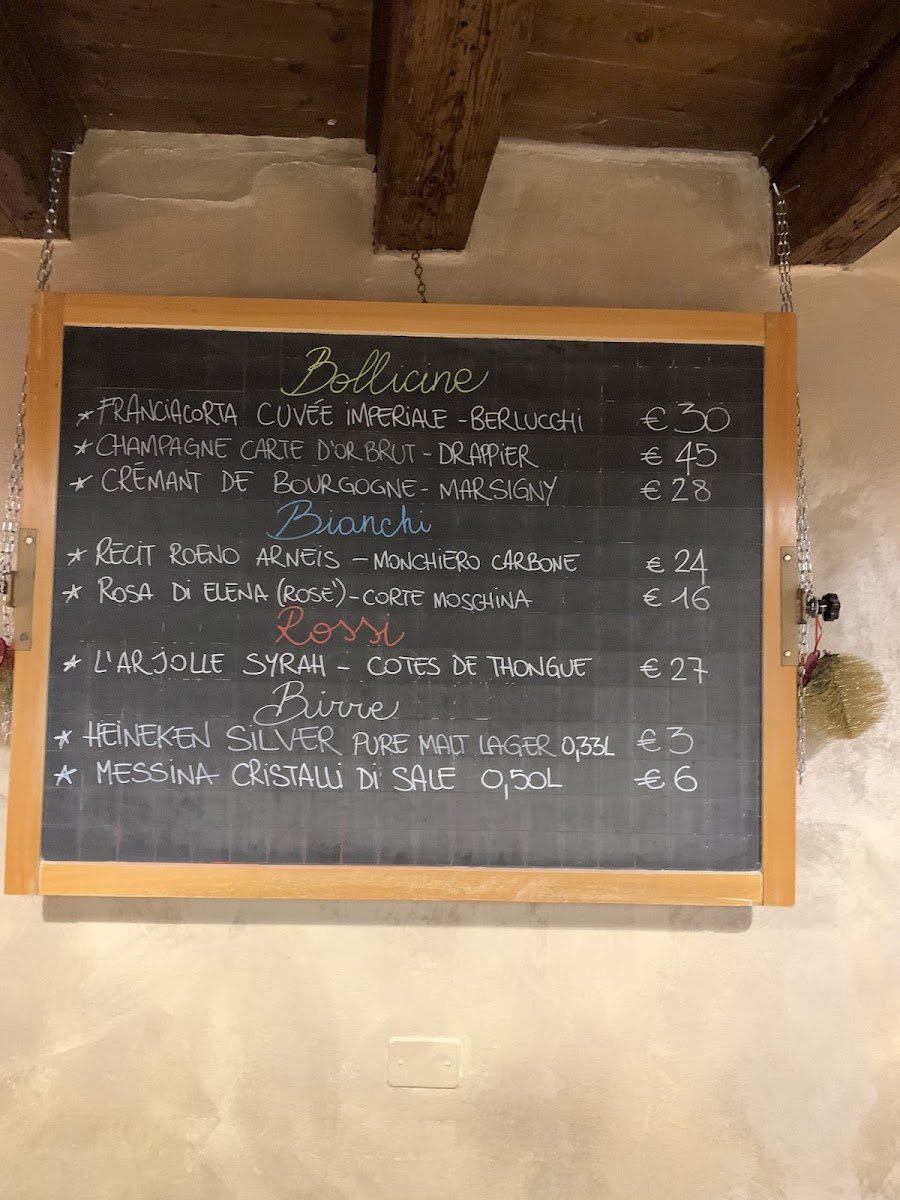 Bollicine
* FRANCIACORTA CUVÉE IMPERIALE - BERLUCCHI € 30
* CHAMPAGNE CARTE D'OR BRUT - DRAPPIER € 45
* CRÉMANT DE BOURGOGNE - MARSIGNY € 28
Bianchi
* RECIT ROENO ARNEIS - MONCHIERO CARBONE € 24
* ROSA DI ELENA (ROSE') - CORTE MOSCHINA € 16
Rossi
* L'ARJOLLE SYRAH - COTES DE THONGUE € 27
Birre
* HEINEKEN SILVER PURE MALT LAGER 0,33L € 3
* MESSINA CRISTALLI DI SALE 0,50L € 6